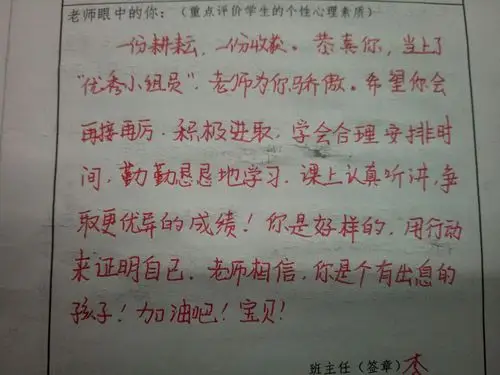 老师眼中的你:（重点评价学生的个性心理素质）
一份耕耘，一份收获。恭喜你，当上了
“优秀小组员”，老师为你骄傲。希望你会
再接再厉，积极进取，学会合理安排时
间，勤勤恳恳地学习，课上认真听讲，争
取更优异的成绩！你是好样的，用行动
来证明自己，老师相信，你是个有出息的
孩子！加油吧！宝贝！
班主任（签章）李